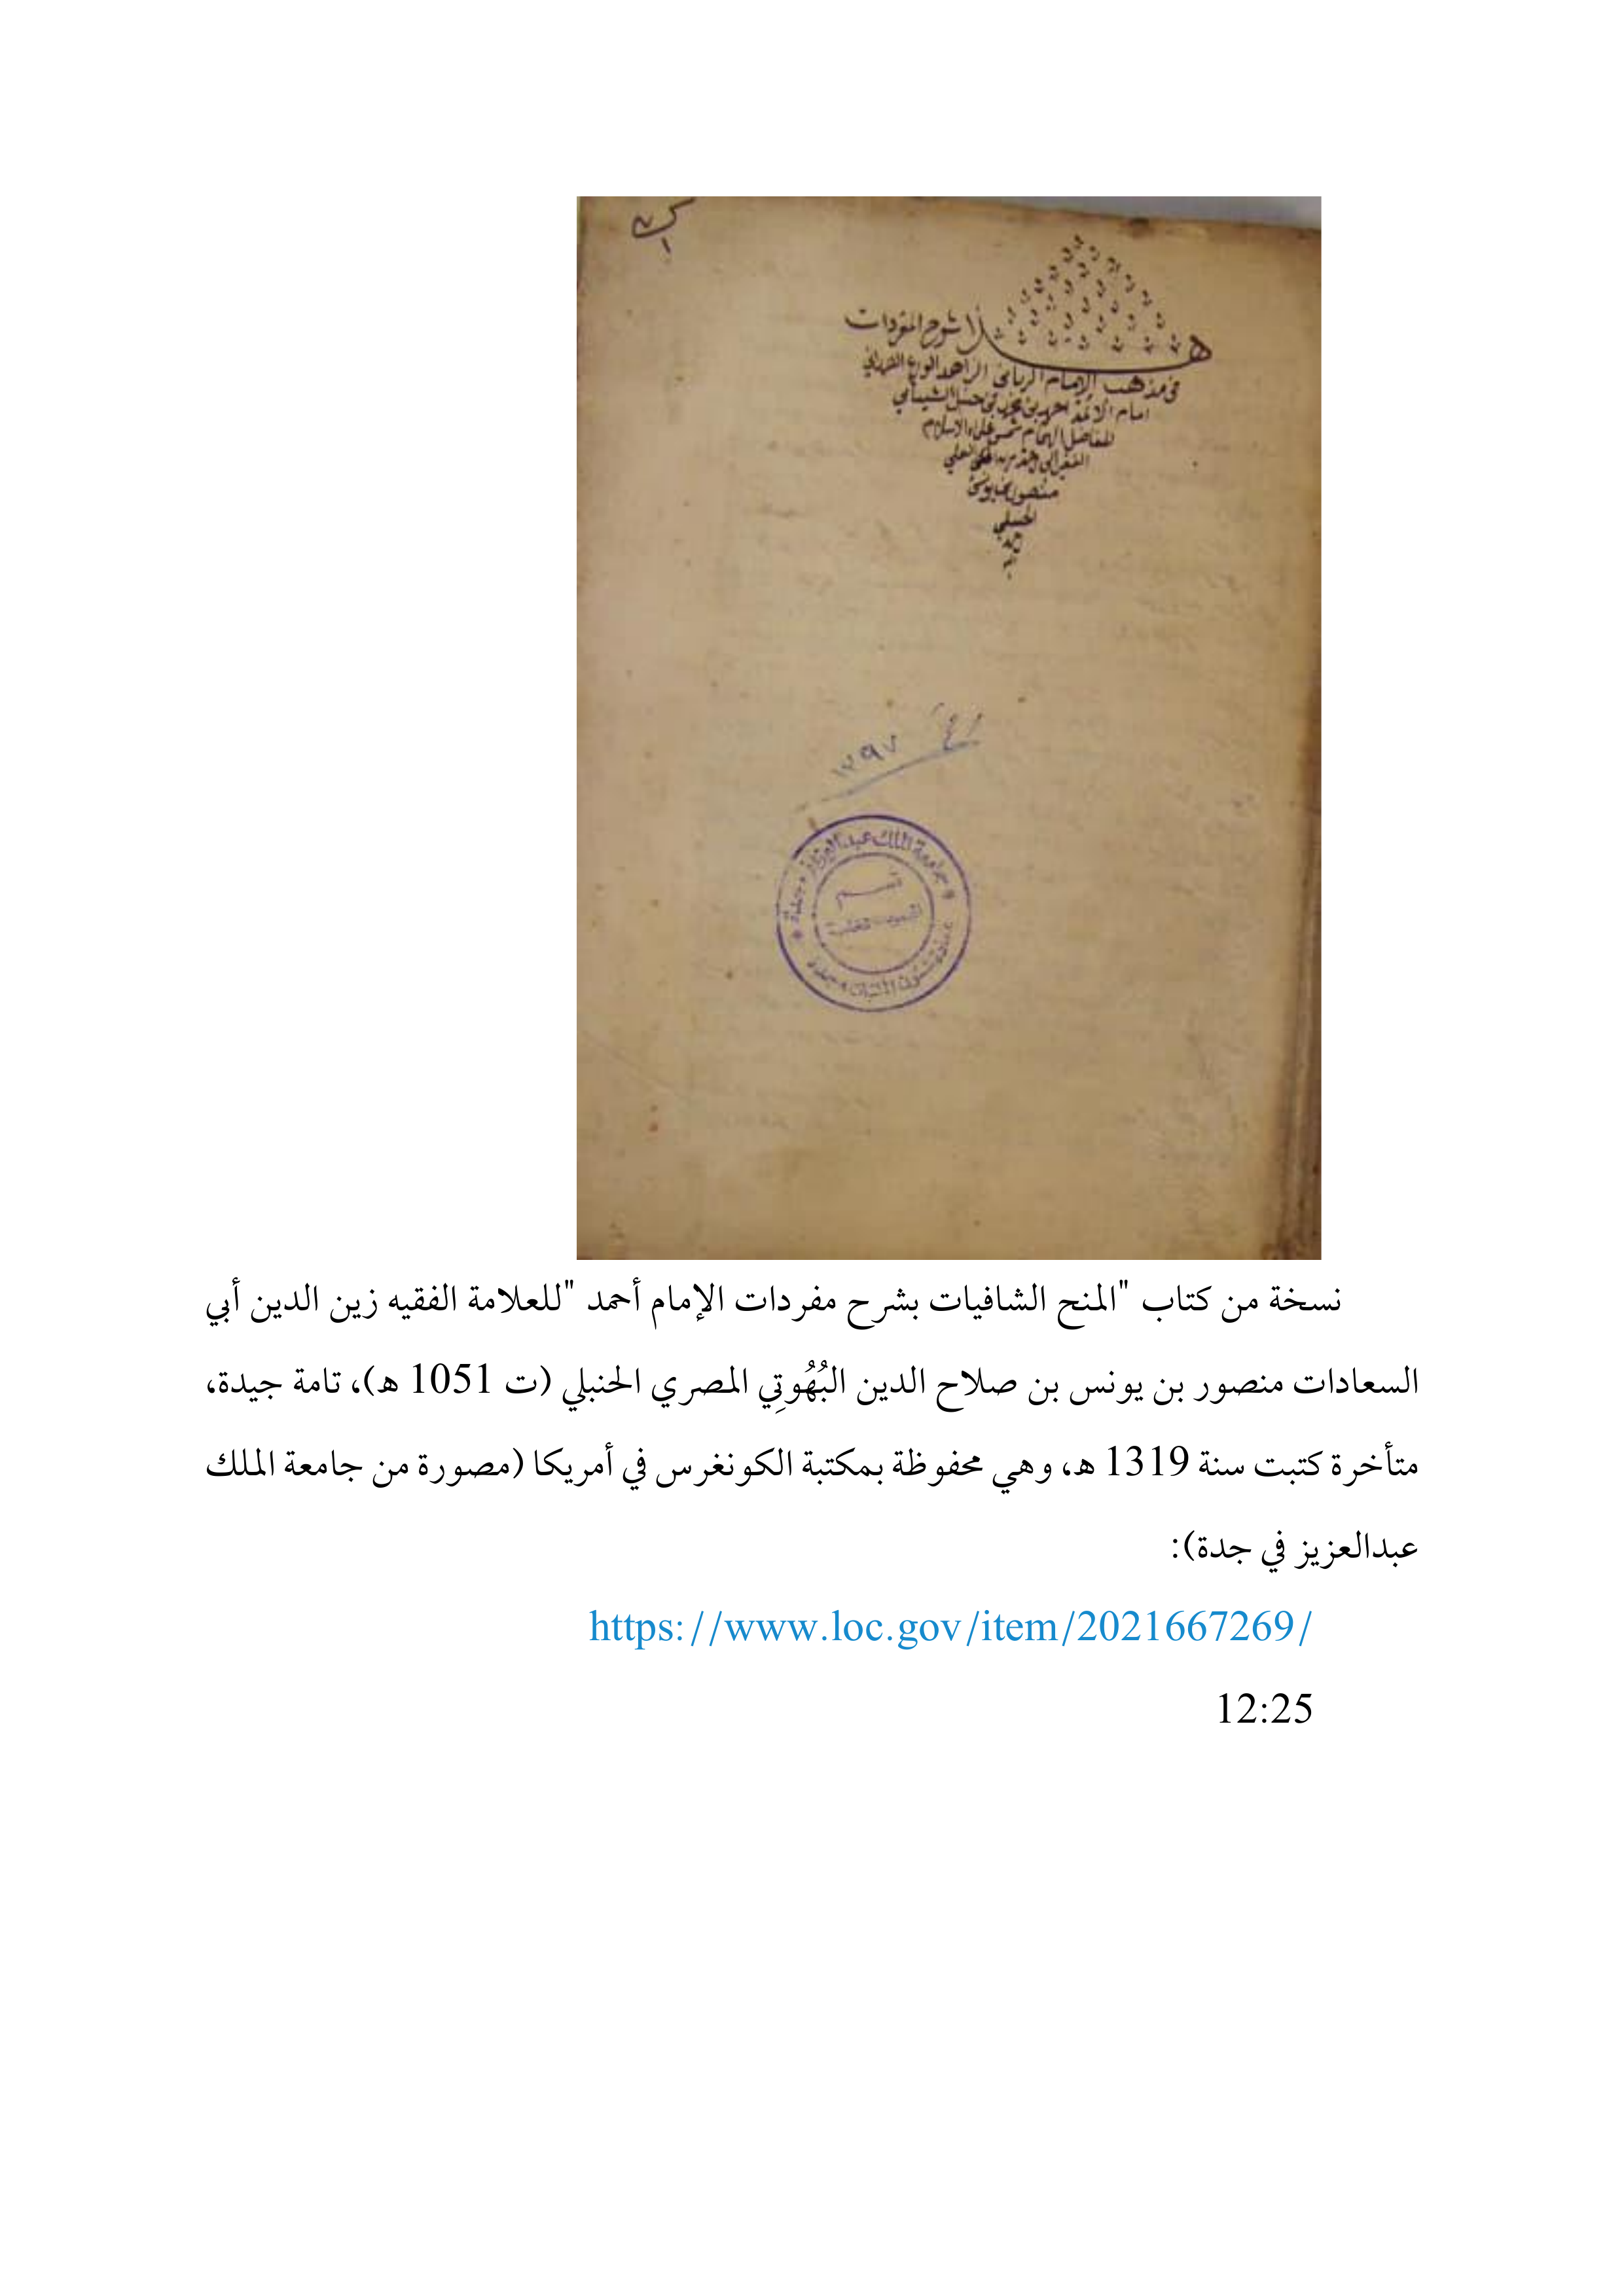 هذا شرح المفردات
في مذهب الإمام الرباني الزاهد الورع
امام الائمة احمد بن محمد بن حنبل الشيباني
للفاضل الهمام شمس علماء الاسلام
الفقير الى العلي
منصور بن يونس
الحنبلي
١٣٩٧
جامعة الملك عبد العزيز • جدة
قسم
عمادة شئون المكتبات • جدة
نسخة من كتاب "المنح الشافيات بشرح مفردات الإمام أحمد "للعلامة الفقيه زين الدين أبي
السعادات منصور بن يونس بن صلاح الدين البُهُوتِي المصري الحنبلي (ت 1051 هـ)، تامة جيدة،
متأخرة كتبت سنة 1319 هـ، وهي محفوظة بمكتبة الكونغرس في أمريكا (مصورة من جامعة الملك
عبدالعزيز في جدة):
https://www.loc.gov/item/2021667269/
12:25